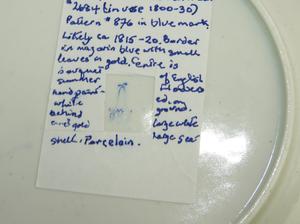 2634 (in use 1800-30)
Pattern #876 in blue mark.
Likely ca 1815-20. Border
in mazarin blue with small
leaves in gold. Centre is
of English
summer
hand paint- ed, on
white ground.
behind large white
and gold large sea
shell. Porcelain.